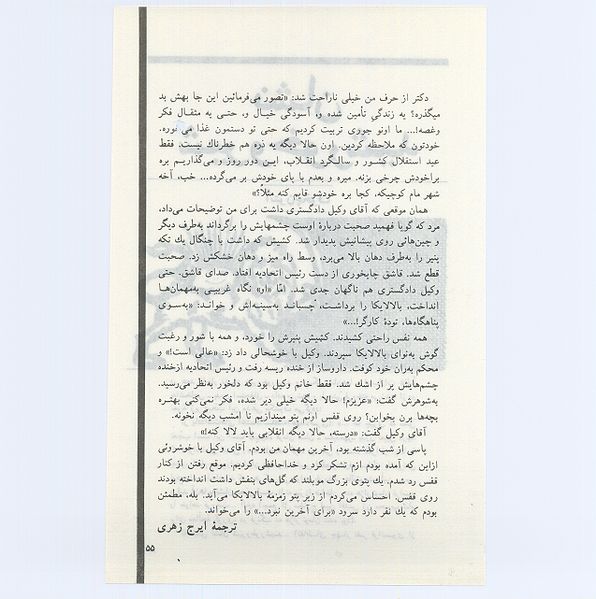 دکتر از حرف من خیلی ناراحت شد: «تصور می‌فرمائین این جا بهش بد
میگذره؟ یه زندگی تأمین شده و، آسودگی خیال و، حتـی یه مثقـال فکر
وغصه!... ما اونو جوری تربیت کردیم که حتی تو دستمون غذا می خوره.
خودتون که ملاحظه کردین. اون حالا دیگه یه ذره هم خطرناك نیست. فقط
عید استقلال کشـور و سالـگرد انقلاب، ایـن دور روز و می‌گذاریـم بره
براخودش چرخی بزنه. میره و بعدم با پای خودش بر می‌گرده... خب، آخه
شهر مام کوچیکه، کجا بره خودشو قایم کنه مثلاً؟»
همان موقعی که آقای وکیل دادگستری داشت برای من توضیحات می‌داد،
مرد که گویا فهمید صحبت دربارهٔ اوست چشمهایش را برگرداند به‌طرف دیگر
و چین‌هائی روی پیشانیش پدیدار شد. کشیش که داشت با چنگال یك تکه
پنیر را به‌طرف دهان بالا می‌برد، وسط راه میز و دهان خشکش زد. صحبت
قطع شد. قاشق چایخوری از دست رئیس اتحادیه افتاد. صدای قاشق. حتی
وکیل دادگستری هم ناگهان جدی شد. امّا «او» نگاه غریبـی به‌مهمان‌ها
انداخت، بالالایکا را برداشـت، چسبانـد به‌سینـه‌اش و خوانـد: «به‌سـوی
پناهگاه‌ها، تودهٔ کارگر!...»
همه نفس راحتی کشیدند. کشیش پنیرش را خورد، و همه با شور و رغبت
گوش به‌نوای بالالایکا سپردند. وکیل با خوشحالی داد زد: «عالی است!» و
محکم به‌ران خود کوفت. داروساز از خنده ریسه رفت و رئیس اتحادیه ازخنده
چشم‌هایش پر از اشك شد. فقط خانم وکیل بود که دلخور به‌نظر می‌رسید.
به‌شوهرش گفت: «عزیزم! حالا دیگه خیلی دیر شده، فکر نمی‌کنی بهتـره
بچه‌ها برن بخوابن؟ روی قفس اونم پتو میندازیم تا امشب دیگه نخونه.
آقای وکیل گفت: «درسته، حالا دیگه انقلابی باید لالا کنه!»
پاسی از شب گذشته بود، آخرین مهمان من بودم. آقای وکیل با خوشروئی
ازاین که آمده بودم ازم تشکر کرد و خداحافظی کردیم. موقع رفتن از کنار
قفس رد شدم. یك پتوی بزرگ موبلند که گل‌های بنفش داشت انداخته بودند
روی قفس. احساس می‌کردم از زیر پتو زمزمهٔ بالالایکا می‌آید. بله، مطمئن
بودم که یك نفر دارد سرود «برای آخرین نبرد...» را می‌خواند.
ترجمهٔ ایرج زهری
۵۵